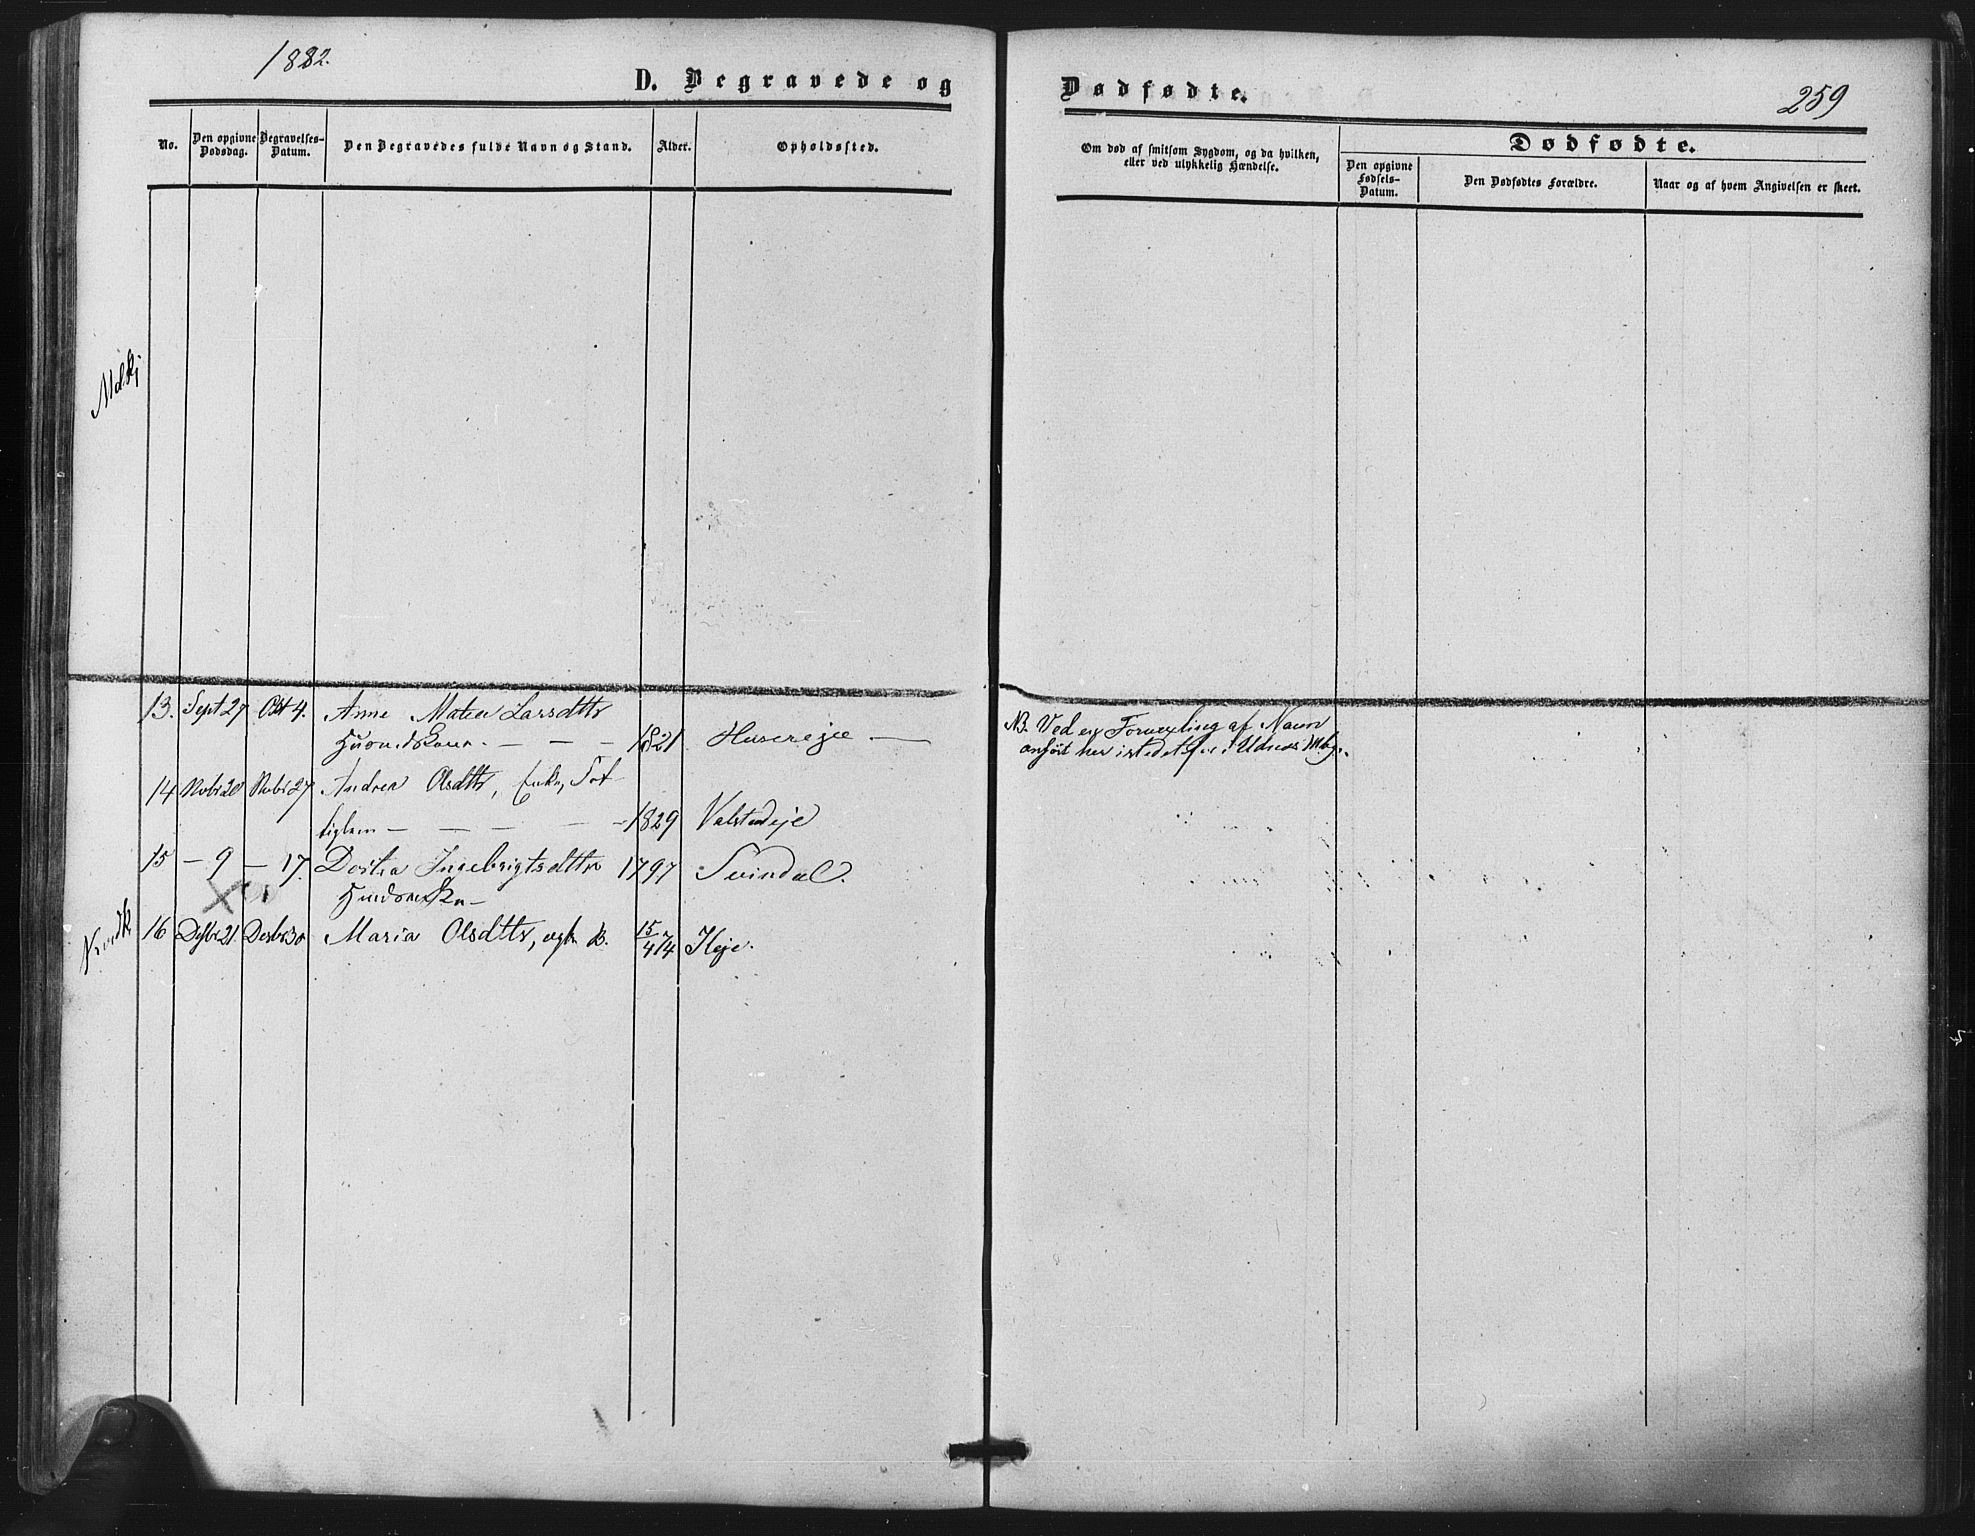 1882.
D. Begravede og
Dødfødte.
259
No.
Den opgivne Dødsdag.
Begravelses-Datum.
Den Begravedes fulde Navn og Stand.
Alder.
Opholdssted.
Om død af smitsom Sygdom, og da hvilken, eller ved ulykkelig Hændelse.
Dødfødte.
Den opgivne Fødsels-Datum.
Den Dødfødtes Forældre.
Naar og af hvem Angivelsen er skeet.
13. Sept 27 Okt 4. Anne Matea Larsdttr
1821 Husereje
NB. Ved en Forvexling af Navn
anført her istedetfor i Udnæs Mbg.
14 Nvbr 20 Nvbr 27 Andrea Olsdttr, Enke, Fat
tiglem 1829 Valstadeje
15 — 9 — 17. Dortea Ingebrigtsdttr 1797 Svindal.
16 Desbr 21. Desbr 30 Maria Olsdttr, ugt. B. 15/4 74 Ileje.